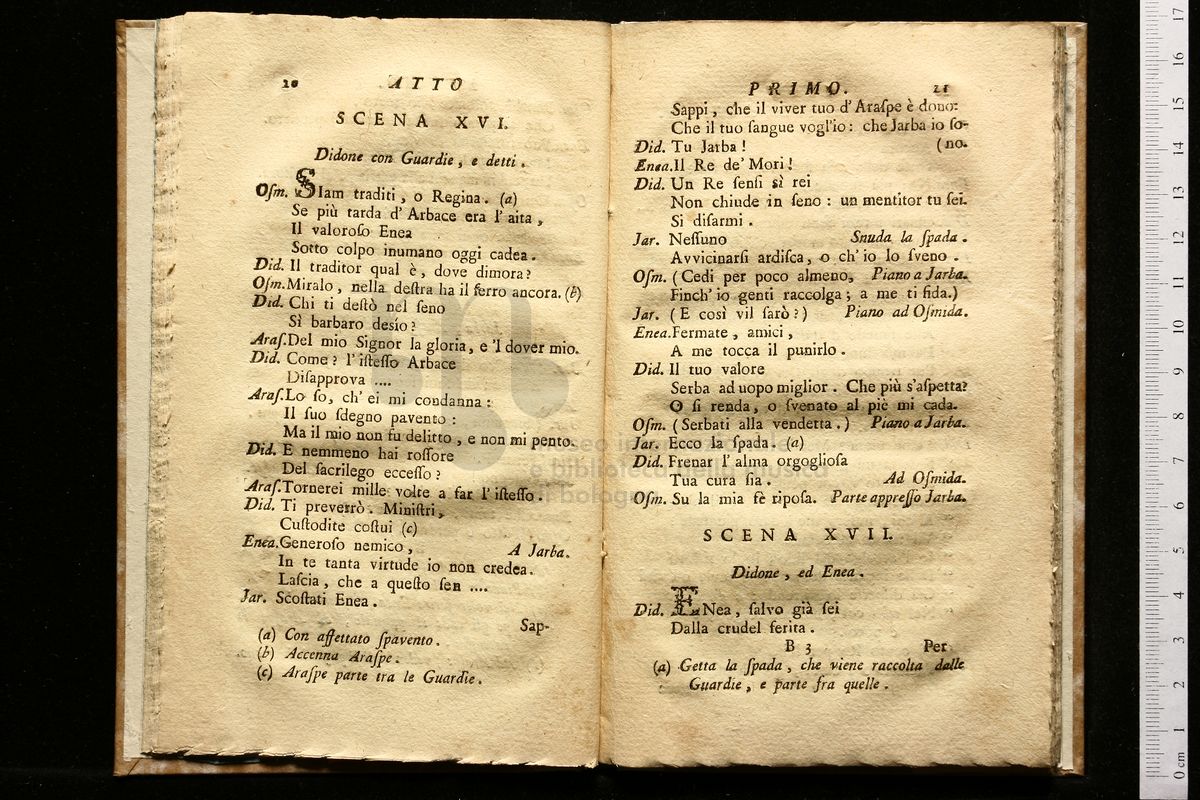 20 ATTO
SCENA XVI.
Didone con Guardie, e detti.
Oſm. SIam traditi, o Regina. (a)
Se più tarda d'Arbace era l'aita,
Il valoroſo Enea
Sotto colpo inumano oggi cadea.
Did. Il traditor qual è, dove dimora?
Oſm. Miralo, nella deſtra ha il ferro ancora. (b)
Did. Chi ti deſtò nel ſeno
Sì barbaro desío?
Araſ. Del mio Signor la gloria, e 'l dover mio.
Did. Come? l'iſteſſo Arbace
Diſapprova ....
Araſ. Lo ſo, ch'ei mi condanna:
Il ſuo ſdegno pavento:
Ma il mio non fu delitto, e non mi pento.
Did. E nemmeno hai roſſore
Del ſacrilego ecceſſo?
Araſ. Tornerei mille volte a far l'iſteſſo.
Did. Ti preverrò. Miniſtri,
Cuſtodite coſtui (c)
Enea. Generoſo nemico, A Jarba.
In te tanta virtude io non credea.
Laſcia, che a queſto ſen ....
Jar. Scoſtati Enea.
Sap-
(a) Con affettato ſpavento.
(b) Accenna Araſpe.
(c) Araſpe parte tra le Guardie.
PRIMO. 21
Sappi, che il viver tuo d'Araſpe è dono:
Che il tuo ſangue vogl'io: che Jarba io ſo-
Did. Tu Jarba! (no.
Enea. Il Re de' Mori!
Did. Un Re ſenſi sì rei
Non chiude in ſeno: un mentitor tu ſei.
Si diſarmi.
Jar. Neſſuno Snuda la ſpada.
Avvicinarſi ardiſca, o ch'io lo ſveno.
Oſm. (Cedi per poco almeno, Piano a Jarba.
Finch'io genti raccolga; a me ti fida.)
Jar. (E così vil farò?) Piano ad Oſmida.
Enea. Fermate, amici,
A me tocca il punirlo.
Did. Il tuo valore
Serba ad uopo miglior. Che più s'aſpetta?
O ſi renda, o ſvenato al piè mi cada.
Oſm. (Serbati alla vendetta.) Piano a Jarba.
Jar. Ecco la ſpada. (a)
Did. Frenar l'alma orgoglioſa
Tua cura ſia. Ad Oſmida.
Oſm. Su la mia fè ripoſa. Parte appreſſo Jarba.
SCENA XVII.
Didone, ed Enea.
Did. ENea, ſalvo già ſei
Dalla crudel ferita.
B 3 Per
(a) Getta la ſpada, che viene raccolta dalle
Guardie, e parte fra quelle.
0 cm 1 2 3 4 5 6 7 8 9 10 11 12 13 14 15 16 17